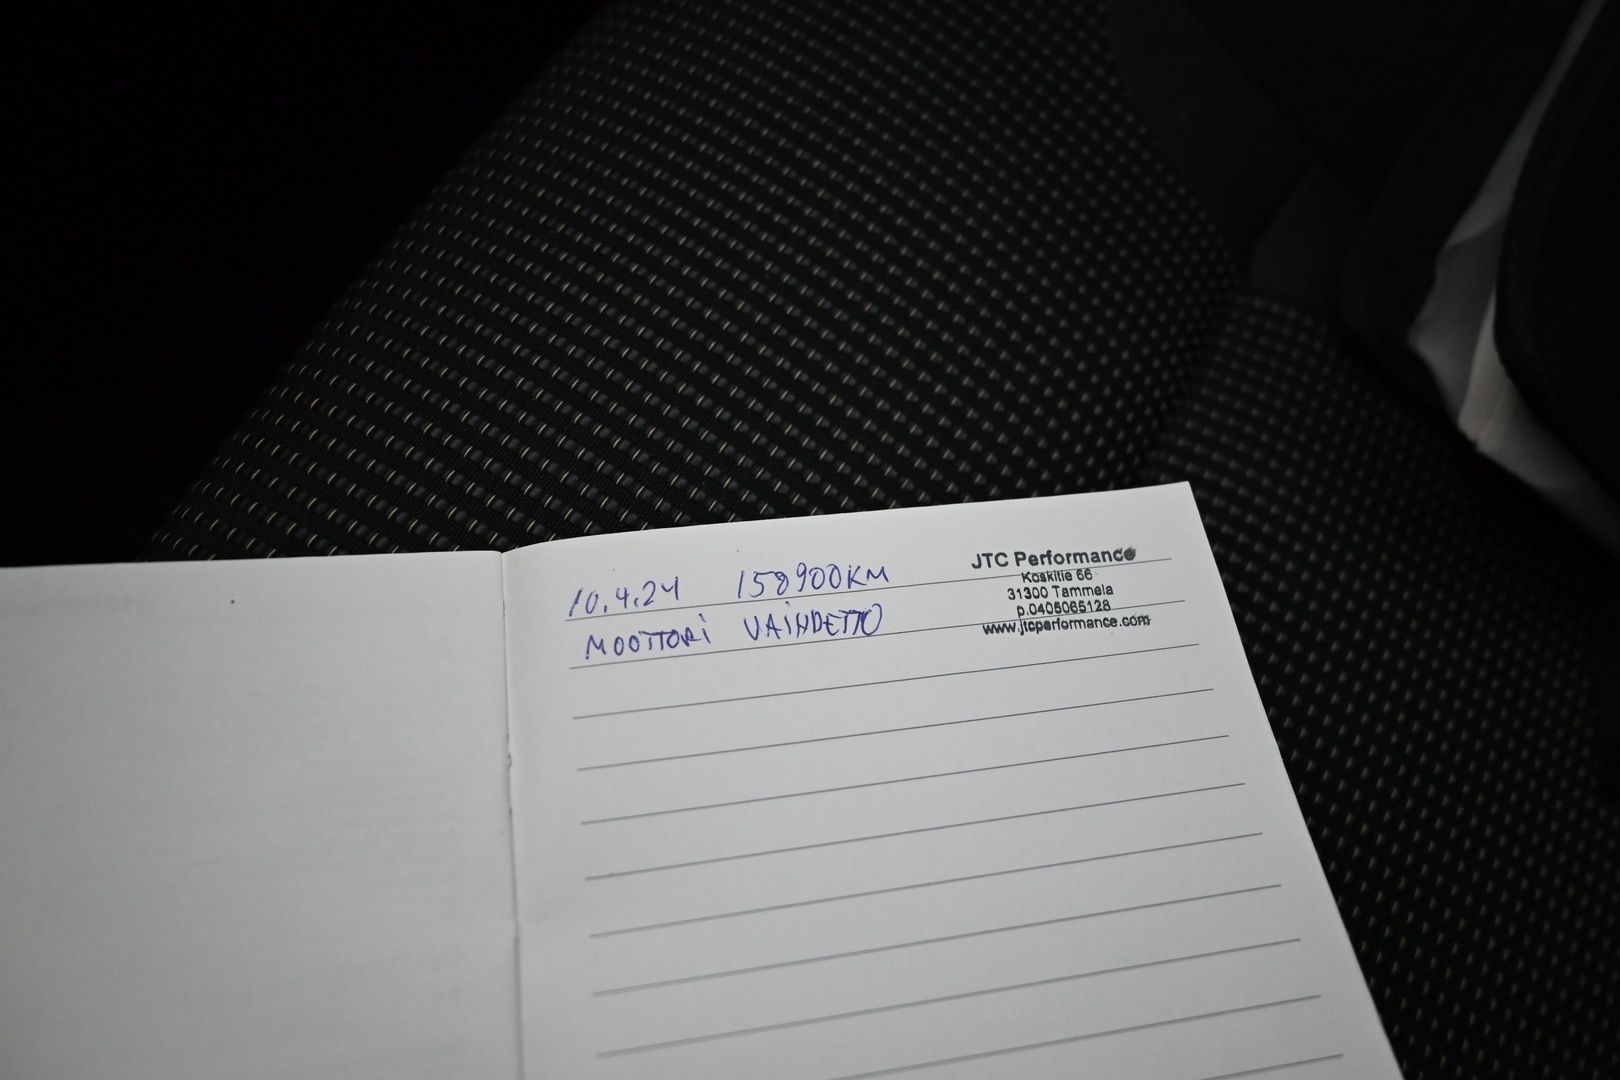 10.4.24 158900KM
MOOTTORI VAIHDETTO
JTC Performance
Koskitie 66
31300 Tammela
p.0405065128
www.jtcperformance.com